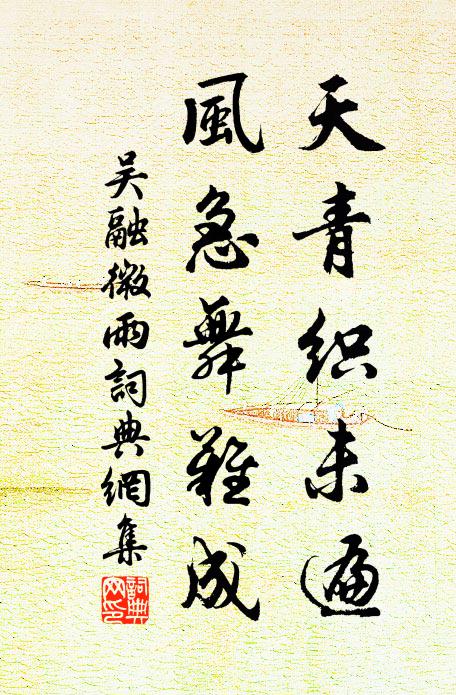 天青织未遍
風急舞難成
吴融微雨詞典網集
詞典网印